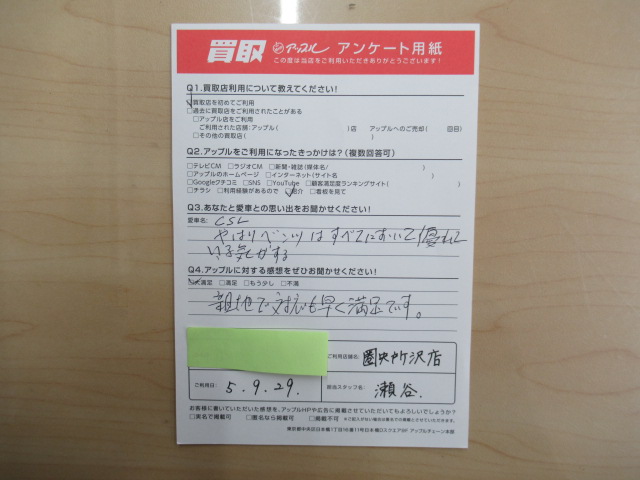 買取 アップル アンケート用紙
この度は当店をご利用いただきありがとうございます!
Q1.買取店利用について教えてください!
□買取店を初めてご利用
□過去に買取店をご利用されたことがある
□アップル店をご利用
ご利用された店舗:アップル( )店 アップルへのご売却( 回目)
□その他の買取店( )
Q2.アップルをご利用になったきっかけは?(複数回答可)
□テレビCM □ラジオCM □新聞・雑誌(媒体名/ )
□アップルのホームページ □インターネット(サイト名 )
□Googleクチコミ □SNS □YouTube □顧客満足度ランキングサイト( )
□チラシ □利用経験があるので □紹介 □看板を見て
Q3.あなたと愛車との思い出をお聞かせください!
愛車名: CSL
やはりベンツはすべてにおいて優れて
いる気がする
Q4.アップルに対する感想をぜひお聞かせください!
□大満足 □満足 □もう少し □不満
親切で対応も早く満足です。
ご利用店舗名: 圏央所沢店
ご利用日: 5.9.29. 担当スタッフ名: 瀬谷.
お客様に書いていただいた感想を、アップルHPや広告に掲載させていただいてもよろしいでしょうか?
□実名で掲載可 □匿名なら掲載可 □掲載不可 ※ご記入がない場合は匿名での掲載とさせていただきます。
東京都中央区日本橋1丁目16番11号日本橋DスクエアBF アップルチェーン本部